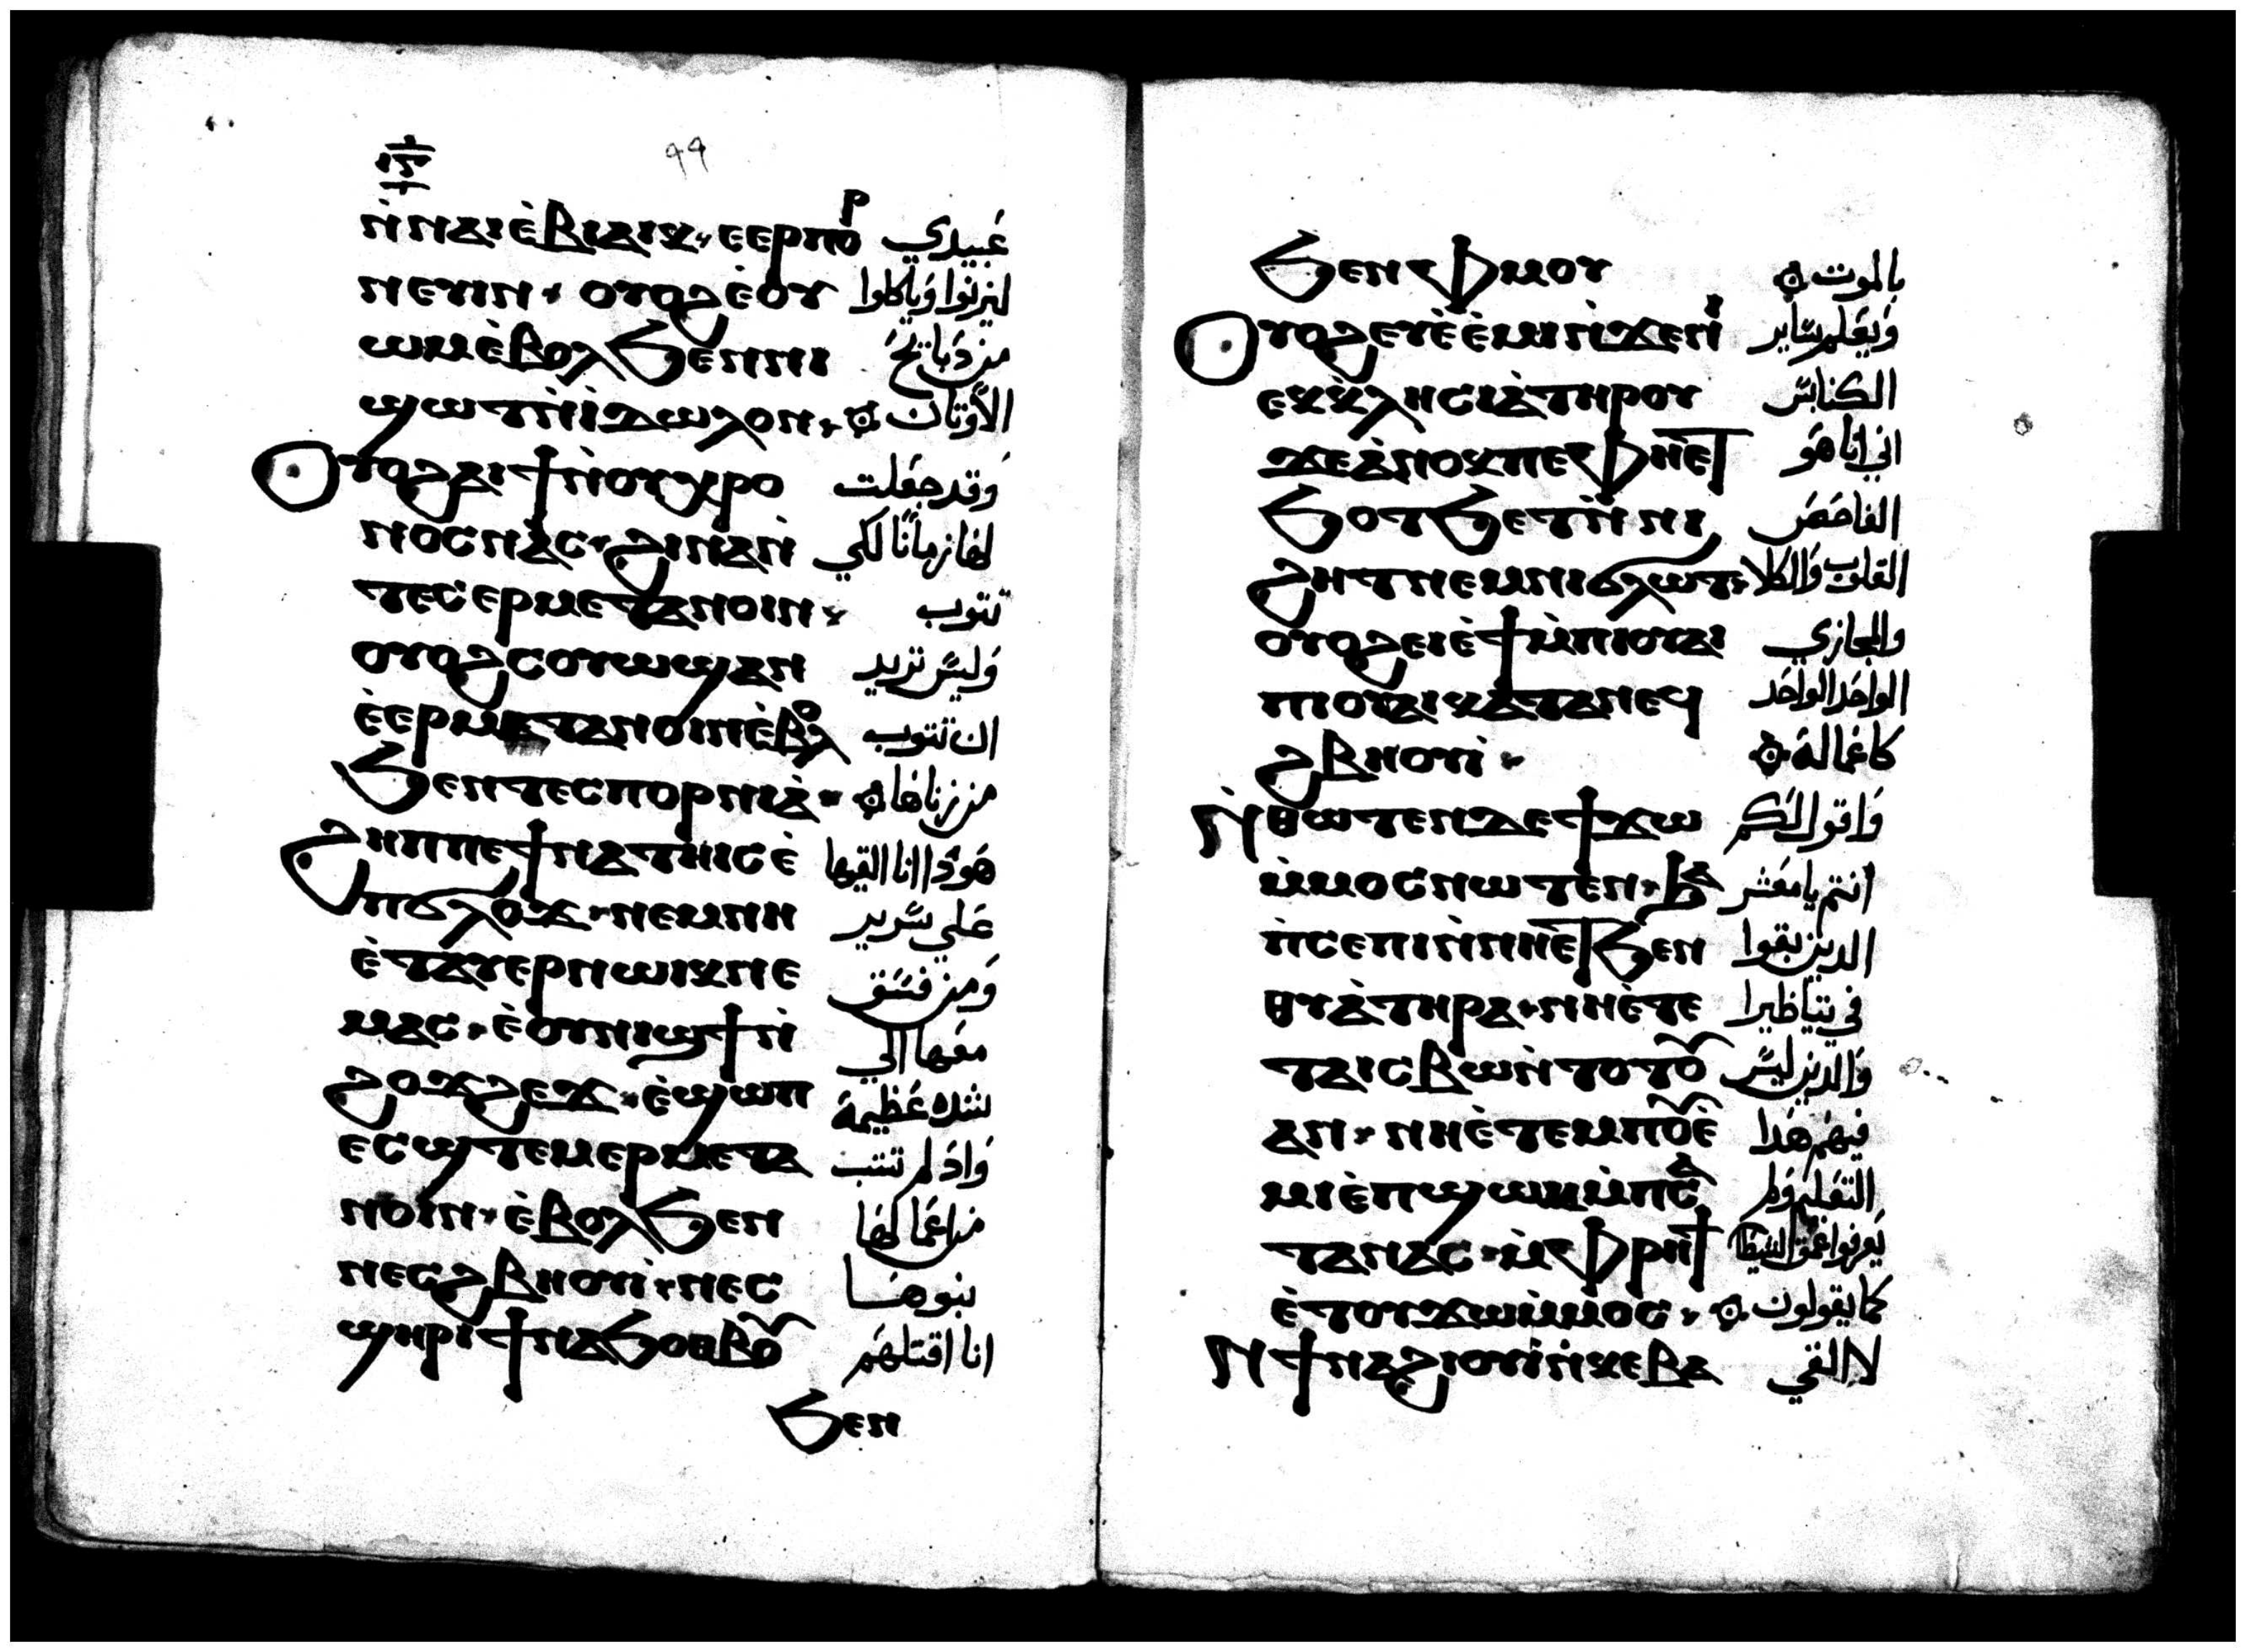 ⲓ̅ⲋ̅
٩٩
ⲛ̀ⲛⲁⲓⲉ̀ⲃⲓⲁⲓⲕ· ⲉⲉⲣⲡⲟⲣ عبيدي
ⲛⲉⲩⲓⲛ· ⲟⲩⲟϩⲉ̀ⲟⲩ ليزنوا وياكلوا
ⲱⲙⲉ̀ⲃⲟⲗϧⲉⲛⲛⲓ من دبايح
ϣⲱⲧⲛ̀ⲓ̀ⲇⲱⲗⲟⲛ· الاوتان
ⲟⲩⲟϩⲁⲓϯⲛ̀ⲟⲩⲭⲣⲟ وقد جعلت
ⲛⲟⲥⲛⲁⲥ· ϩⲓⲛⲁⲛ̀ لها زمانا لكي
ⲧⲉⲥⲉⲣⲙⲉⲧⲁⲛⲟⲓⲛ· تتوب
ⲟⲩⲟϩⲥⲟⲩⲱϣⲁⲛ وليس تريد
ⲉ̀ⲉⲣⲙⲉⲧⲁⲛⲟⲓⲛⲉ̀ⲃⲟⲗ ان تتوب
ϧⲉⲛⲧⲉⲥⲡⲟⲣⲛⲓⲁ̀· من زناها
ϩⲏⲡⲡⲉϯⲛⲁⲧⲏⲓⲥⲉ̀ هودا انا القيها
ⲡϭⲗⲟϫ· ⲛⲉⲙⲛⲏ علي سرير
ⲉ̀ⲧⲁⲩⲉⲣⲛⲱⲓⲕⲛⲉ ومن فسق
ⲙⲁⲥ· ⲉ̀ⲟⲩⲛⲓϣϯⲛ̀ معها الي
ϩⲟϫϩⲉϫ· ⲉ̀ϣⲱⲡ شده عظيمة
ⲉⲥϣⲧⲉⲙⲉⲣⲙⲉⲧⲁ واد لم تتب
ⲛⲟⲓⲛ· ⲉ̀ⲃⲟⲗϧⲉⲛ من اعمالها
ⲛⲉⲥϩⲃⲏⲟⲩⲓ̀· ⲛⲉⲥ بنوها
ϣⲏⲣⲓϯⲛⲁϧⲟⲑⲃⲟⲩ انا اقتلهم
ϧⲉⲛ
ϧⲉⲛⲫⲙⲟⲩ بالموت
ⲟⲩⲟϩⲉⲩⲉ̀ⲉ̀ⲙⲓⲛ̀ϫⲉⲛⲓ ويعلم ساير
ⲉⲕⲕ̀ⲗⲏⲥⲓⲁ̀ⲧⲏⲣⲟⲩ الكنايس
ϫⲉⲁ̀ⲛⲟⲕⲡⲉⲫⲏⲉⲧ اني انا هو
ϧⲟⲧϧⲉⲧⲛ̀ⲛⲓ الفاحص
ϩⲏⲧⲛⲉⲙⲛⲓϭⲗⲱⲧ· القلوب والكلا
ⲟⲩⲟϩⲉⲓⲉ̀ϯⲙ̀ⲡⲓⲟⲩⲁⲓ والمجازي
ⲡⲓⲟⲩⲁⲓⲕⲁⲧⲁⲛⲉϥ الواحد الواحد
ϩⲃⲏⲟⲩⲓ̀· كاعماله
ⲛ̀ⲑⲱⲧⲉⲛⲇⲉϯϫⲱ واقول لكم
ⲙ̀ⲙⲟⲥⲛⲱⲧⲉⲛ· ϧⲁ انتم يا معشر
ⲡ̀ⲥⲉⲡⲓⲛ̀ⲛⲏⲉⲧϧⲉⲛ الدين بقوا
ⲑⲩⲁ̀ⲧⲏⲣⲁ· ⲛⲏⲉ̀ⲧⲉ في تياظيرا
ⲧⲁⲓⲥⲃⲱⲛ̀ⲧⲟⲧⲟⲩ والدين ليس
ⲁⲛ· ⲛⲏⲉ̀ⲧⲉⲙⲡⲟⲩⲉ̀ فيهم هدا
ⲙⲓⲉ̀ⲡϣⲱⲕⲙ̀ⲡⲥⲁ التعليم ولم
ⲧⲁⲛⲁⲥ· ⲙ̀ⲫⲣⲏϯ يعرفوا عمق الشيطان
ⲉ̀ⲧⲟⲩϫⲱⲙ̀ⲙⲟⲥ· كما يقولون
ⲛϯⲛⲁϩⲓⲟⲩⲓ̀ⲛ̀ⲕⲉⲃⲁ لا القي